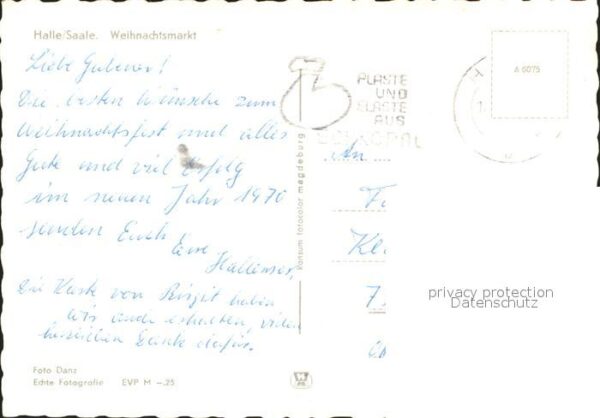 Halle/Saale. Weihnachtsmarkt
Liebe Gubener!
Die besten Wünsche zum
Weihnachtsfest und alles
Gute und viel Erfolg
im neuen Jahr 1970
senden Euch
Eure
Hallenser.
Die Karte von Birgit haben
wir auch erhalten, vielen
herzlichen Dank dafür.
Foto Danz
Echte Fotografie EVP M –.25
Konsum fotocolor magdeburg
PLASTE
UND
ELASTE
AUS
A 6075
An
privacy protection
Datenschutz